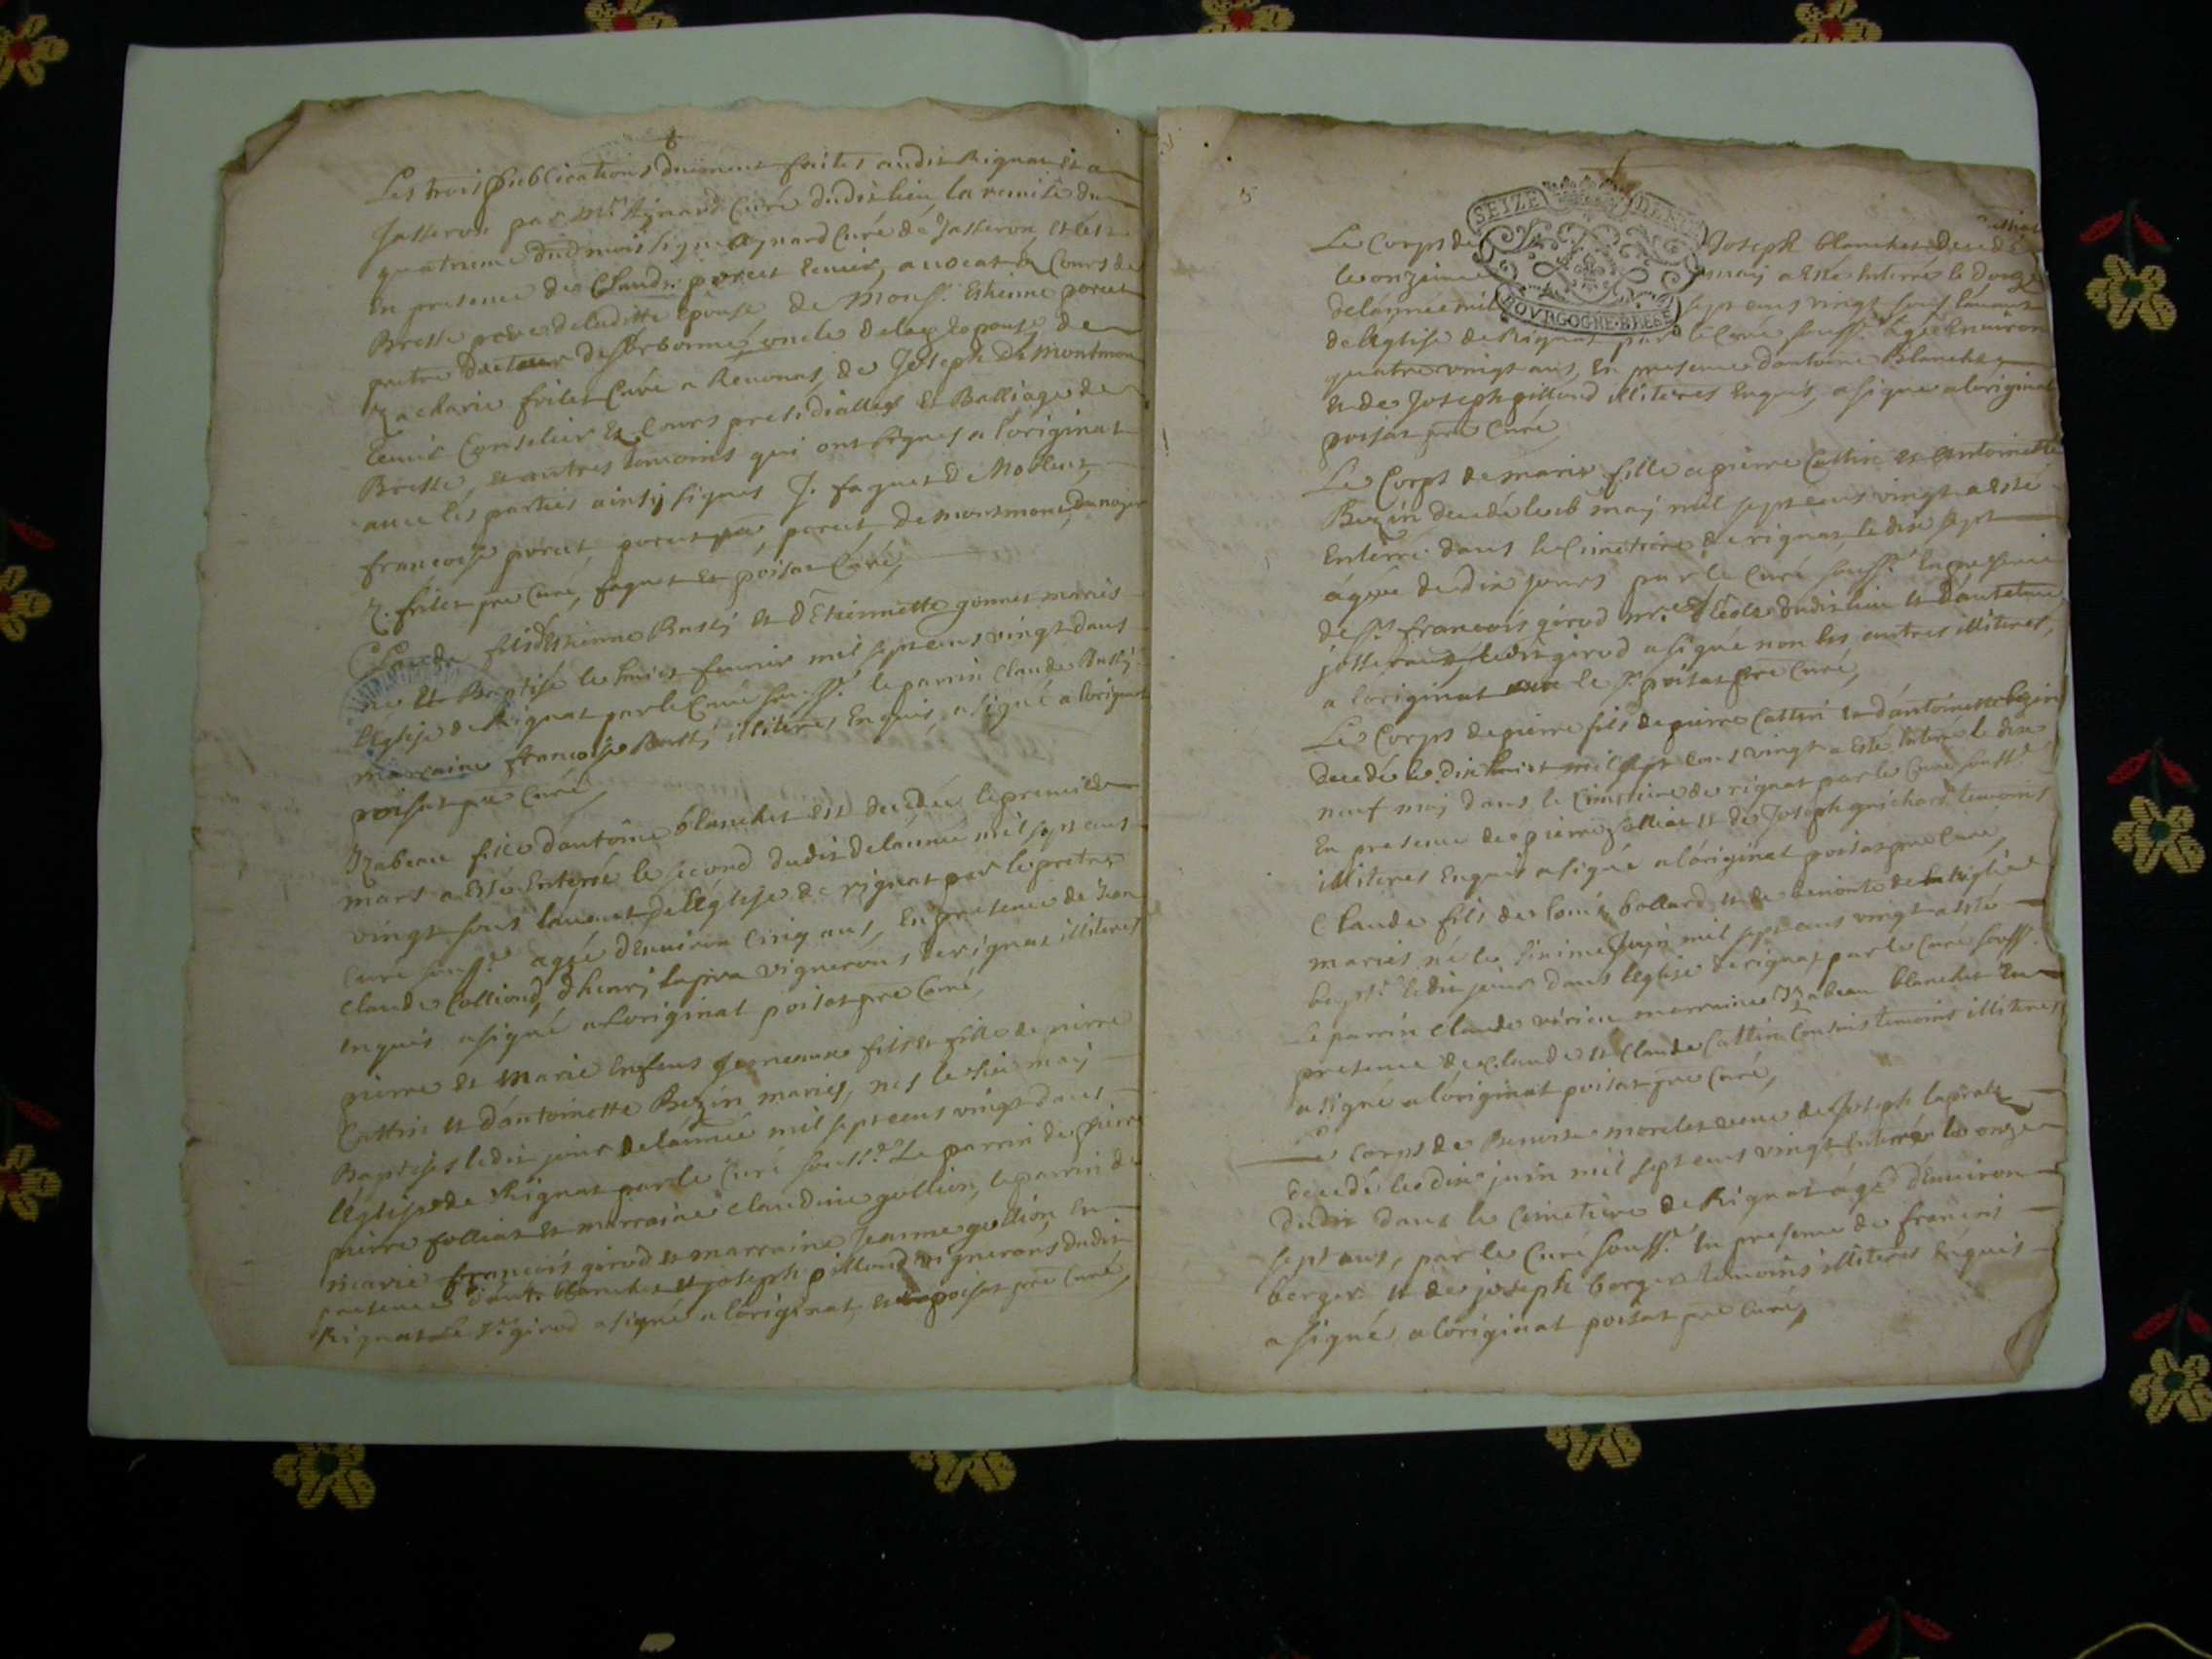 Les trois publications duement faites audit Rignat et a
Jasseron par Mre Aynard Curé dudit lieu la remise du
quatrieme dud mois signé aynard Curé de Jasseron, et ce
En presence de Claude porcet avocat Cours de
Bresse pere de laditte Epouse, de Monsr. Estienne porcet
pretre docteur de sorbonne oncle de lad epouse, de
Zacharie frilet Curé a Revonas, de Joseph de Montmon
Conselier Es Cours presidialles Et Balliage de
Bresse, et autres temoins qui ont signes a l'original
avec les parties ainsy signes J. faguet de Noblens,
francoise porcet, porcet pre, porcet, de montmond, dunoyer
Z. frilet pre Curé, faguet et poisat Curé,
Claude fils d'Estienne Bussy et d'Etiennette gonnet maries
né Et Baptise le huict feuvrier mil sept cens vingt dans
l'Eglise de Rignat par le Curé soussé. le parrin Claude Bussy
marraine francoise Bussy illiteres Enquis, a signé a l'original
poisat pre Curé,
Izabeau fille d'antoine blanchet est decedée le premier de
mars a Esté Enterré le second dudit de l'année mil sept cens
vingt sous lauvent de l'Eglise de rignat par le pretre
Curé soussé. agée d'Environ Cinq ans, En presence de Jean
claude Colliond, d'henry lapra vignerons de rignat illiteres
Enquis a signé a l'original poisat pre Curé,
pierre Et Marie Enfens Jemeaux fils et fille de pierre
Cattin et d'antoinette Bezin maries, nes le six may
Baptises ledit jour de l'année mil sept cens vingt dans
l'Eglise de Rignat par le Curé soussé. Le parrin de pierre
pierre folliat et marraine claudine gullion, le parrin de
marie francois girod et marraine Jeanne gullion En
presence d'ant. blanchet et joseph pilloud vignerons dudit
Rignat le sr. girod a signé a l'original, et poisat pre Curé,
5
SEIZE DEN
BOVRGOGNE·BRESSE
Le Corps de Joseph blanchet decedé
le onzieme may a esté Enterré le douze
de l'année mil sept cens vingt sous lauvent
de l'Eglise de Rignat par le Curé soussé. agé Environ
quatre vingt ans, En presence d'antoine Blanchet
et de Joseph pilloud illiteres Enquis, a signé a l'original
poisat pre Curé
Le Corps de marie fille a pierre Cattin et d'antoinette
Bezin decedé le 16 may mil sept cens vingt a esté
Enterré dans le Cimetiere de rignat, le dix sept
agée de dix jours par le Curé soussé. En presence
de sr. francois girod mre. d'Ecole dudit lieu et d'antoine
josserand, ledit girod a signé non les autres illiteres,
a l'original le sr. poisat pre Curé,
Le Corps de pierre fils de pierre Cattin et d'antoinette bezin
decedé le dix huict mil sept cens vingt a esté Enterré le dix
neuf may dans le Cimetiere de rignat par le Curé soussé.
En presence de pierre folliat et de Joseph guichard temoins
illiteres Enquis a signé a l'original poisat pre Curé,
Claude fils de Louis bollard et de benoite de
maries né le sixieme juin mil sept cens vingt a esté
bapt. ledit jour dans l'Eglise de rignat par le Curé soussé.
Le parrin claude marraine Izabeau blanchet En
presence de claude et claude Cattin Cousins temoins illiteres
a signé a l'original poisat pre Curé,
Le corps de Benoite morelet de Joseph laprat
decedé le dix juin mil sept cens vingt Enterré le onze
dudit dans le Cimetiere de Rignat agé d'Environ
sept ans, par le Curé soussé. En presence de francois
berger et de joseph berger temoins illiteres Enquis
a signé a l'original poisat pre Curé,